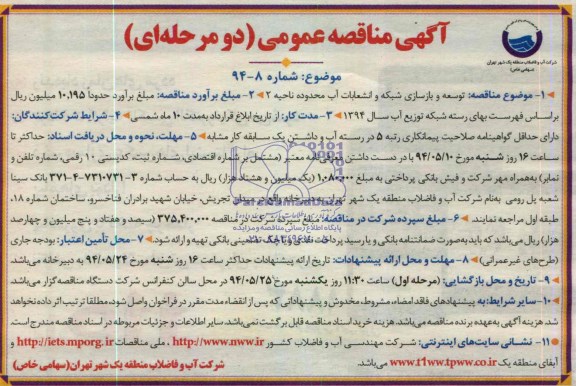 آگهی مناقصه عمومی (دو مرحله‌ای)
شرکت آب و فاضلاب منطقه یک شهر تهران
(سهامی خاص)
موضوع: شماره ۸-۹۴
۱- موضوع مناقصه: توسعه و بازسازی شبکه و انشعابات آب محدوده ناحیه ۲ ۲- مبلغ برآورد مناقصه: مبلغ برآورد حدوداً ۱۰،۱۹۵ میلیون ریال
براساس فهرست بهای رسته شبکه توزیع آب سال ۱۳۹۴ ۳- مدت کار: از تاریخ ابلاغ قرارداد به‌مدت ۱۰ ماه شمسی ۴- شرایط شرکت‌کنندگان:
دارای حداقل گواهینامه صلاحیت پیمانکاری رتبه ۵ در رسته آب و داشتن یک سابقه کار مشابه ۵- مهلت، نحوه و محل دریافت اسناد: حداکثر تا
ساعت ۱۶ روز شنبه مورخ ۹۴/۰۵/۱۰ با در دست داشتن معتبر (مشتمل بر شماره اقتصادی، شماره ثبت، کدپستی ۱۰ رقمی، شماره تلفن و
نمابر) به‌همراه مهر شرکت و فیش بانکی پرداختی به مبلغ ۱،۰۸۰،۰۰۰ (یک میلیون و هشتاد هزار) ریال به حساب شماره ۳-۷۳۱۰۷۳۱-۴-۳۷۱ بانک سینا
شعبه پل رومی به‌نام شرکت آب و فاضلاب منطقه یک شهر تهران به دبیرخانه واقع در میدان تجریش، خیابان شهید برادران فناخسرو، ساختمان شماره ۱۱۸،
طبقه اول مراجعه نمایند. ۶- مبلغ سپرده شرکت در مناقصه: مبلغ سپرده شرکت در مناقصه ۳۷۵،۴۰۰،۰۰۰ (سیصد و هفتاد و پنج میلیون و چهارصد
هزار) ریال می‌باشد که باید به‌صورت ضمانتنامه بانکی و یا رسید پرداخت نقدی و یا چک تضمینی بانکی تهیه و ارائه شود. ۷- محل تأمین اعتبار: بودجه جاری
(طرح‌های غیرعمرانی) ۸- مهلت و محل ارائه پیشنهادات: تاریخ ارائه پیشنهادات حداکثر ساعت ۱۶ روز شنبه مورخ ۹۴/۰۵/۲۴ به دبیرخانه می‌باشد.
۹- تاریخ و محل بازگشایی: (مرحله اول) ساعت ۱۱:۳۰ روز یکشنبه مورخ ۹۴/۰۵/۲۵ در محل سالن کنفرانس شرکت دستگاه مناقصه‌گزار می‌باشد.
۱۰- سایر شرایط: به پیشنهادهای فاقد امضاء، مشروط، مخدوش و پیشنهاداتی که پس از انقضاء مدت مقرر در فراخوان واصل شود، مطلقا ترتیب اثر داده نخواهد
شد. هزینه آگهی به‌عهده برنده مناقصه می‌باشد. هزینه خرید اسناد مناقصه قابل برگشت نمی‌باشد. سایر اطلاعات و جزئیات مربوطه در اسناد مناقصه مندرج است.
۱۱- نشانی سایت‌های اینترنتی: شرکت مهندسی آب و فاضلاب کشور http://www.nww.ir ، ملی مناقصات http://iets.mporg.ir و
آبفای منطقه یک www.t1ww.tpww.co.ir می‌باشد.
شرکت آب و فاضلاب منطقه یک شهر تهران (سهامی خاص)
پایگاه اطلاع رسانی مناقصه و مزایده